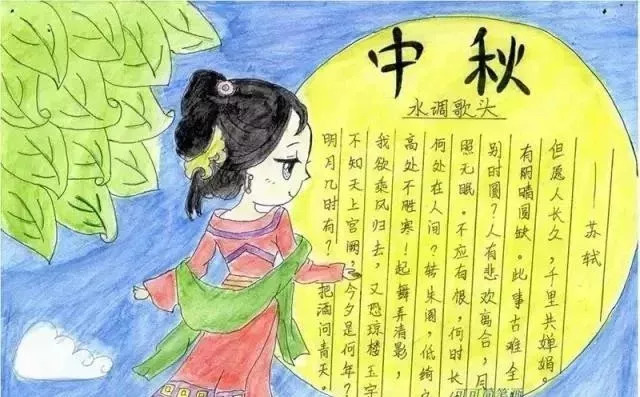 中秋
水调歌头
明月几时有？把酒问青天。
不知天上宫阙，今夕是何年？
我欲乘风归去，又恐琼楼玉宇
高处不胜寒！起舞弄清影，
何处在人间？转朱阁，低绮户
照无眠。不应有恨，何时长
别时圆？人有悲欢离合，月
有阴晴圆缺。此事古难全
但愿人长久，千里共婵娟。
——苏轼
可可简笔画